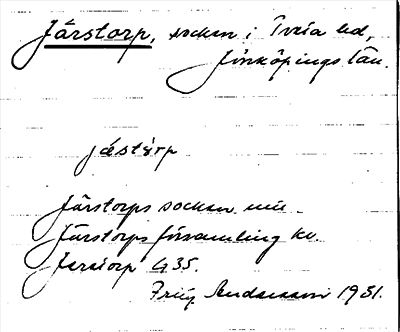 Järstorp, socken i Tveta hd,
Jönköpings län.
jästårp
Järstorps socken
Järstorps församling kv.
Jerstorp G35.
Andersson 1931.